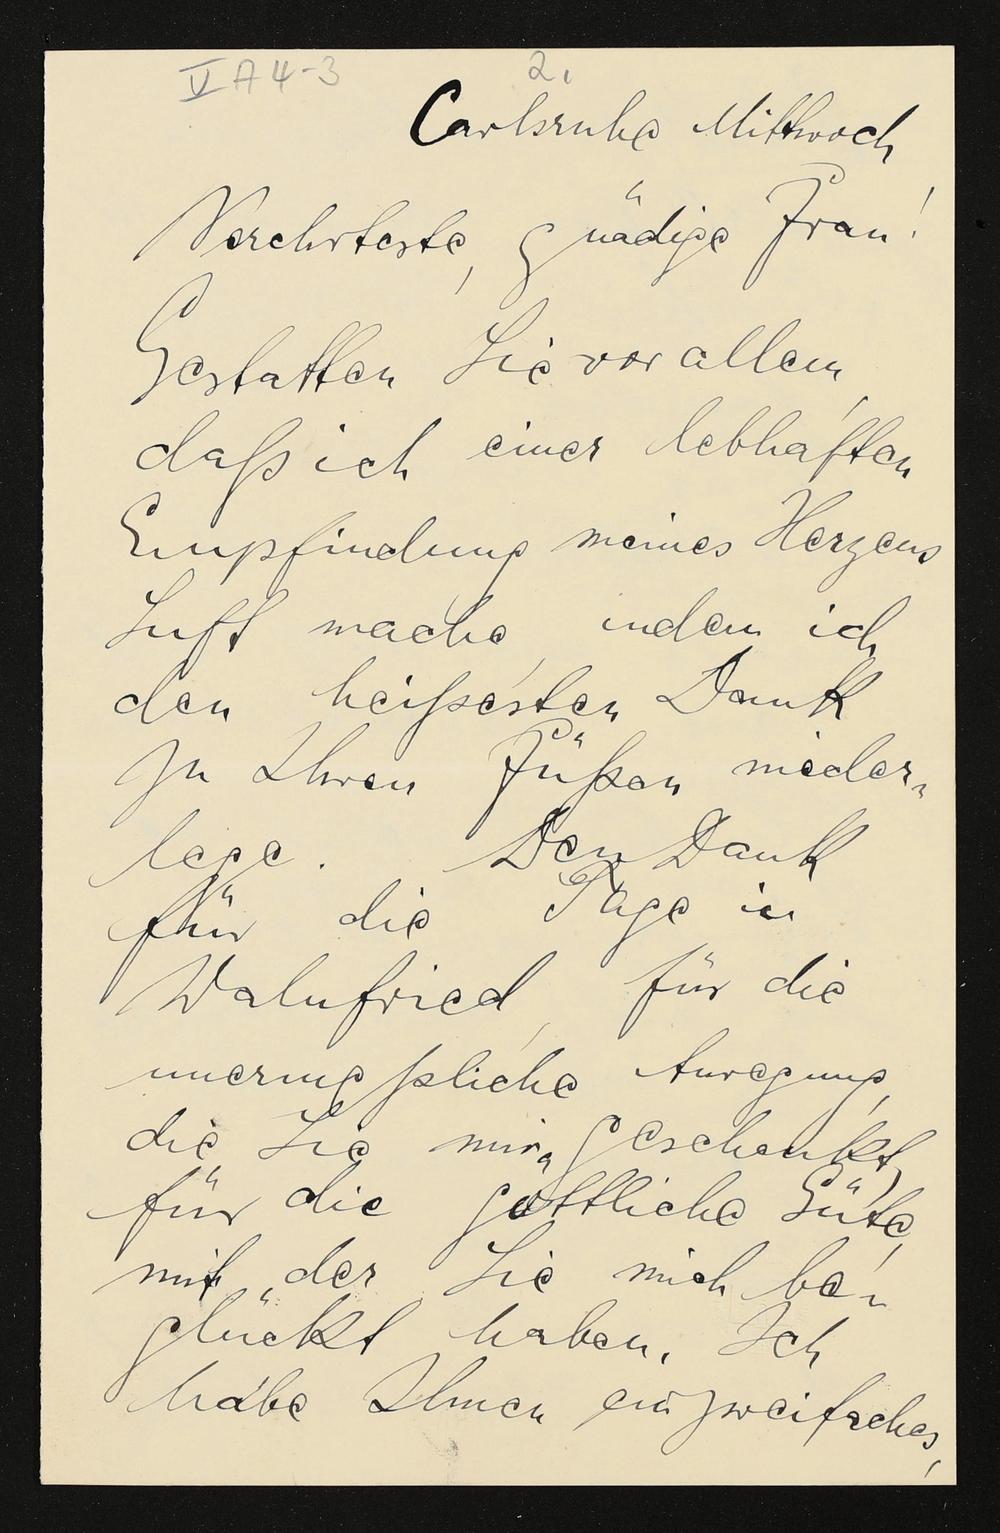 V A 4-3 2.
Carlsruhe Mittwoch
Verehrteste, gnädige Frau!
Gestatten Sie vor allem,
daß ich einer lebhaften
Empfindung meines Herzens
Luft mache, indem ich
den heißesten Dank
zu Ihren Füßen nieder-
lege. Den Dank
für die Tage in
Wahnfried, für die
unermeßliche Anregung,
die Sie mir geschenkt,
für die göttliche Güte,
mit der Sie mich be-
glückt haben. Ich
habe Ihnen ein zweifaches,